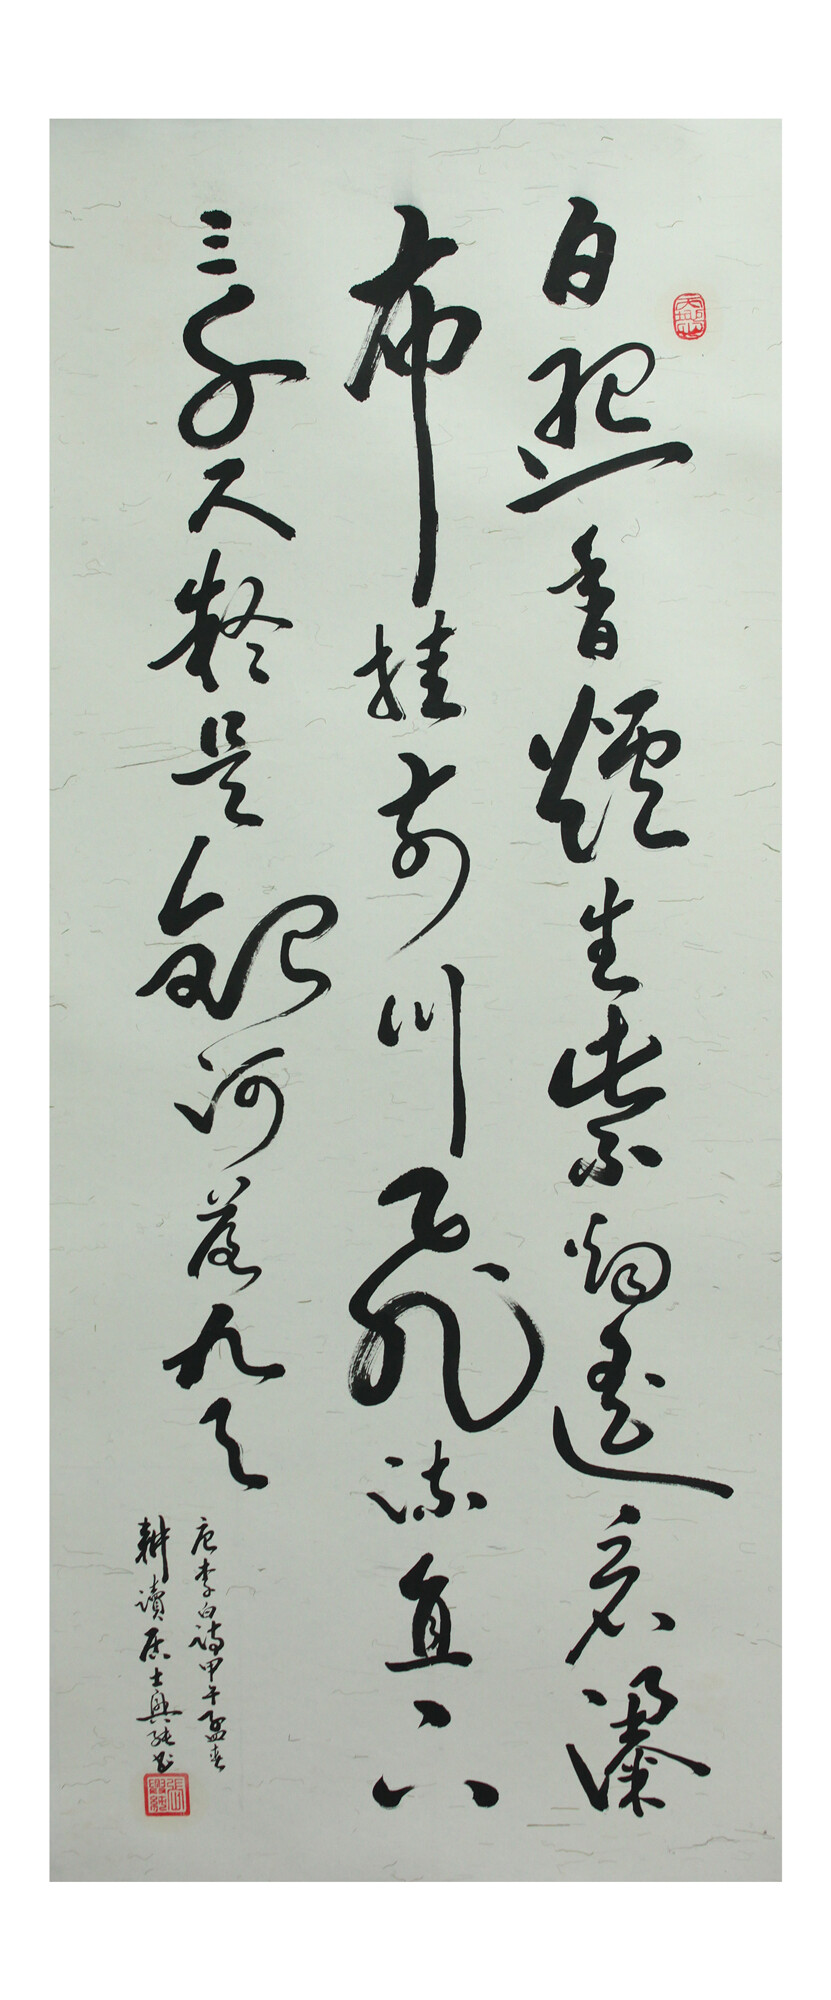 日照香爐生紫烟遥看瀑
布挂前川飛流直下
三千尺疑是銀河落九天
唐李白詩甲午孟春
耕讀居士興純书